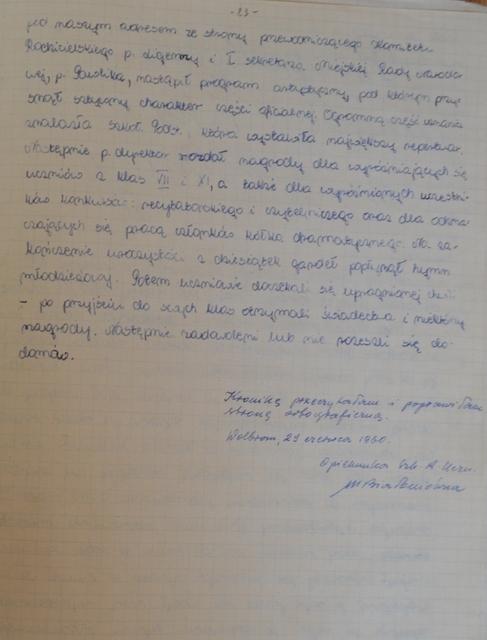 - 23 -
pod naszym adresem ze strony przewodniczącego Komitetu
Rodzicielskiego p. i I sekretarza Miejskiej Rady Narodo-
wej, p. nastąpił program artystyczny, pod którym
charakter części oficjalnej. Ogromną część uznania
znalazła szkoł. która wystawiła największy repertuar.
Następnie p. dyrektor rozdał nagrody dla wyróżniających się
uczniów z klas VII i XI, a także dla wyróżnionych uczestni-
ków konkursu: recytatorskiego i czytelniczego oraz dla odzna-
czających się pracą członków kółka dramatycznego. Na za-
kończenie uroczystości z dziesiątek gardeł popłynął hymn
młodzieżowy. Potem uczniowie doczekali się upragnionej
- po przyjściu do swych klas otrzymali świadectwa i niektórzy
nagrody. Następnie zadowoleni lub nie poszli się do
domów.
Kronikę przeczytałam i poprawiłam
stronę ortograficzną.
Wolbrom, 29 czerwca 1960.
Opiekunka